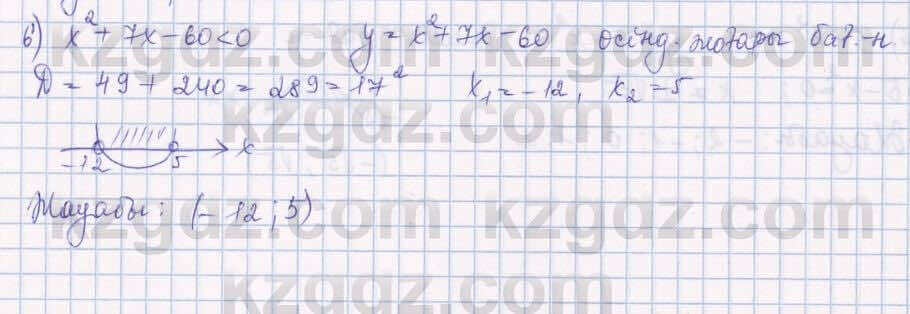 б) x² + 7x - 60 < 0 y = x² + 7x - 60 жоғары бағ.-н
D = 49 + 240 = 289 = 17² x₁ = -12, x₂ = 5
-12 5 x
Жауабы: (-12; 5)
kzgdz.com
kzgdz.com
kzgdz.com
kzgdz.com